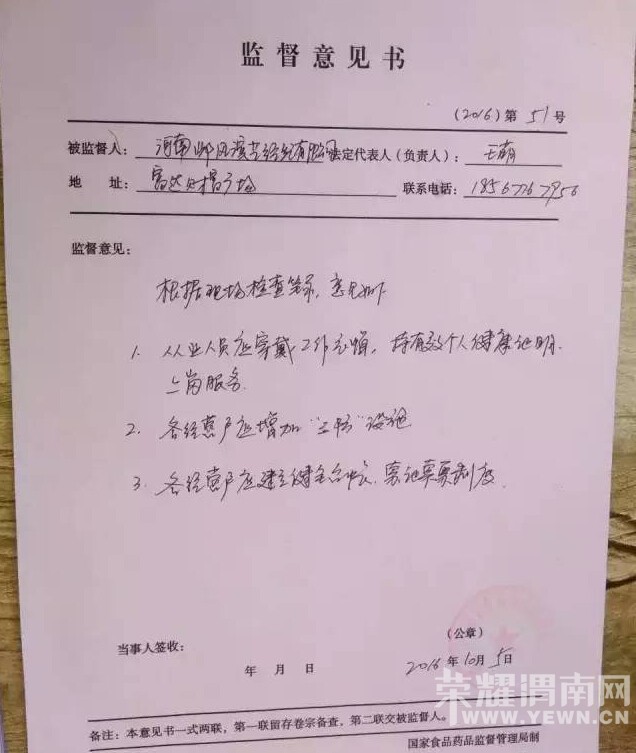 监督意见书
(2016)第 51 号
被监督人: 河南 有限公司 法定代表人(负责人): 王萌
地 址: 富达财富广场 联系电话: 18567767956
监督意见:
根据现场检查笔录,意见如下
1. 从业人员应穿戴工作衣帽,持有效个人健康证明
上岗服务.
2. 各经营户应增加“三防”设施
3. 各经营户应建立健全台帐、索证索票制度.
(公章)
当事人签收:
年 月 日 2016 年 10 月 5 日
备注:本意见书一式两联,第一联留存卷宗备查,第二联交被监督人。
国家食品药品监督管理局制
荣耀渭南网
WWW.YEWN.CN